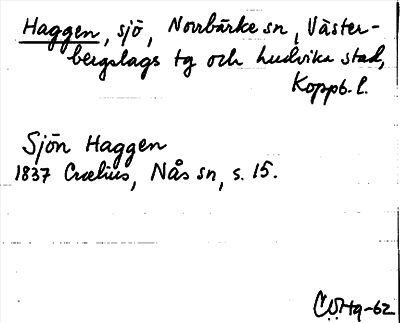 Haggen, sjö, Norrbärke sn, Väster-
bergslags tg och Ludvika stad,
Koppb. l.
Sjön Haggen
1837 Crælius, Nås sn, s. 15.
CÖHq-62